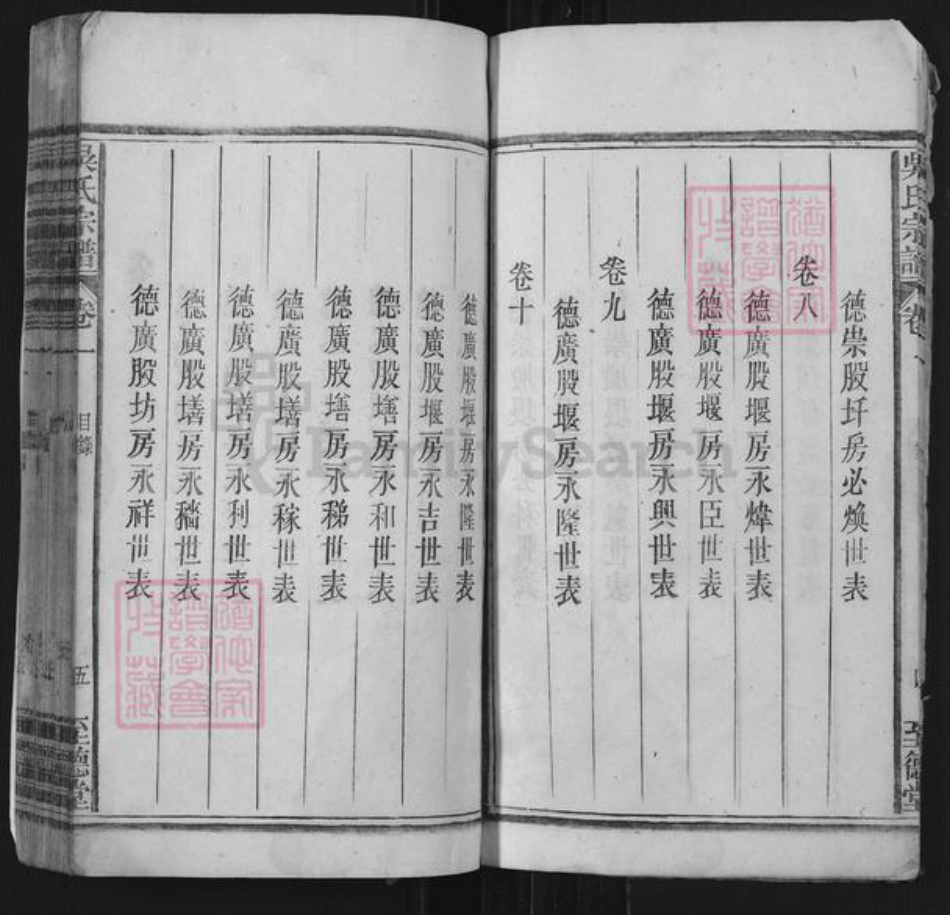 吳氏宗譜
卷一
德崇股圩房必煥世表
卷八
德廣股堰房永煒世表
德廣股堰房永臣世表
德廣股堰房永興世表
卷九
德廣股堰房永隆世表
卷十
至德堂
德廣股堰房永隆世表
德廣股堰房永吉世表
德廣股墻房永和世表
德廣股墻房永稊世表
德廣股墻房永稼世表
德廣股墻房永利世表
德廣股墻房永穡世表
德廣股坊房永祥世表
吳氏宗譜
卷一
目錄
五
至德堂
FamilySearch